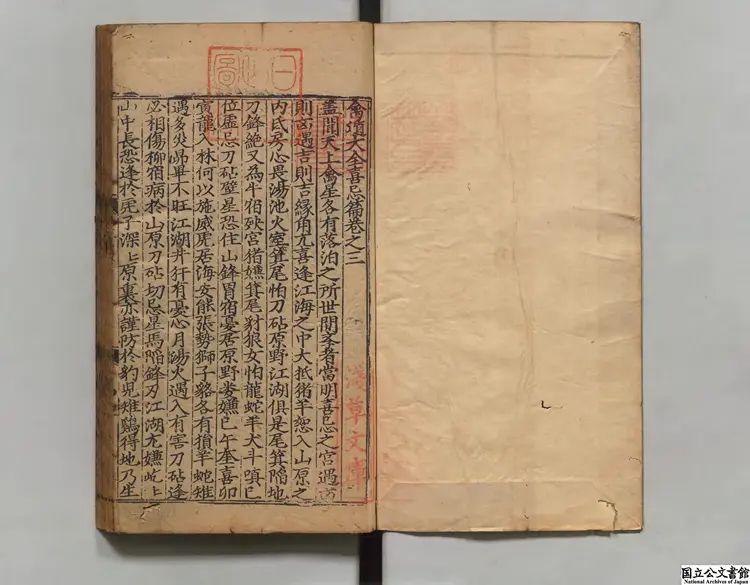 禽遁大全喜忌篇卷之三
蓋聞天上禽星各有落泊之所世間李者當明喜忌之宮遇凶
則凶遇吉則吉縁角亢喜逢江海之中大抵牛羊恋入山原之
内氐房心畏湯池火室箕尾怕刀砧原野江湖俱是尾箕陷地
刀鋒絶又為牛宿殃宮猪嫌箕尾豺狼女怕龍蛇羊犬斗嗔已
位虚忌刀砧壁星恐住山鋒胃宿憂居原野娄嫌已午奎喜卯
寅龍入林何以施威虎居海安能張勢獅子貉各有損羊蛇雉
遇多災昴畢不旺江湖井犴有憂心月湯火遇入有害刀砧逢
必相傷柳宿病於山原刀砧切忌星馬陷鋒刃江湖尤嫌屹上
山中長恐逢於虎子深上原裏亦謹防於豹児雉鷄得地乃生
淺草文庫
国立公文書館
National Archives of Japan